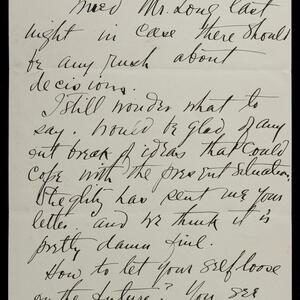 Wired Mr. Long last
night in case there should
be any rush about
decisions.
I still wonder what to
say. Would be glad of any
out break of ideas that could
cope with the present situation.
has sent me your
letter and we think it is
pretty damn fine.
How to let yourself loose
on the future? You see